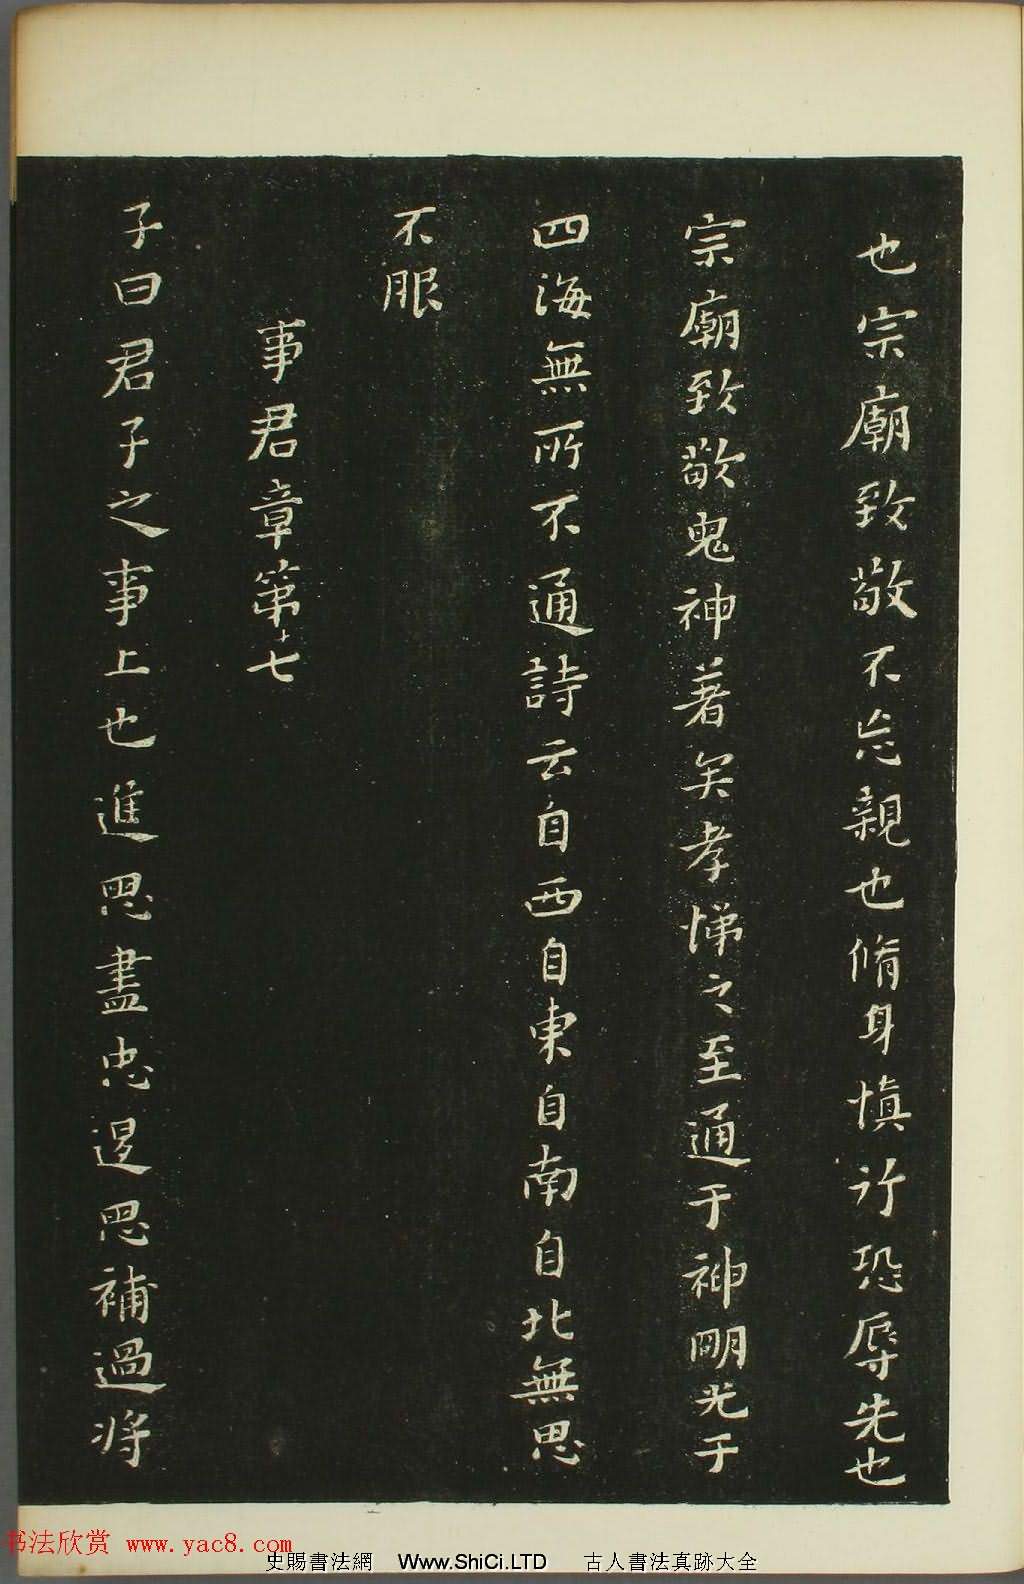 也宗廟致敬不忘親也脩身慎行恐辱先也
宗廟致敬鬼神著矣孝悌之至通于神明光于
四海無所不通詩云自西自東自南自北無思
不服
事君章第十七
子曰君子之事上也進思盡忠退思補過將
书法欣赏 www.yac8.com
史賜書法網 Www.ShiCi.LTD 古人書法真跡大全